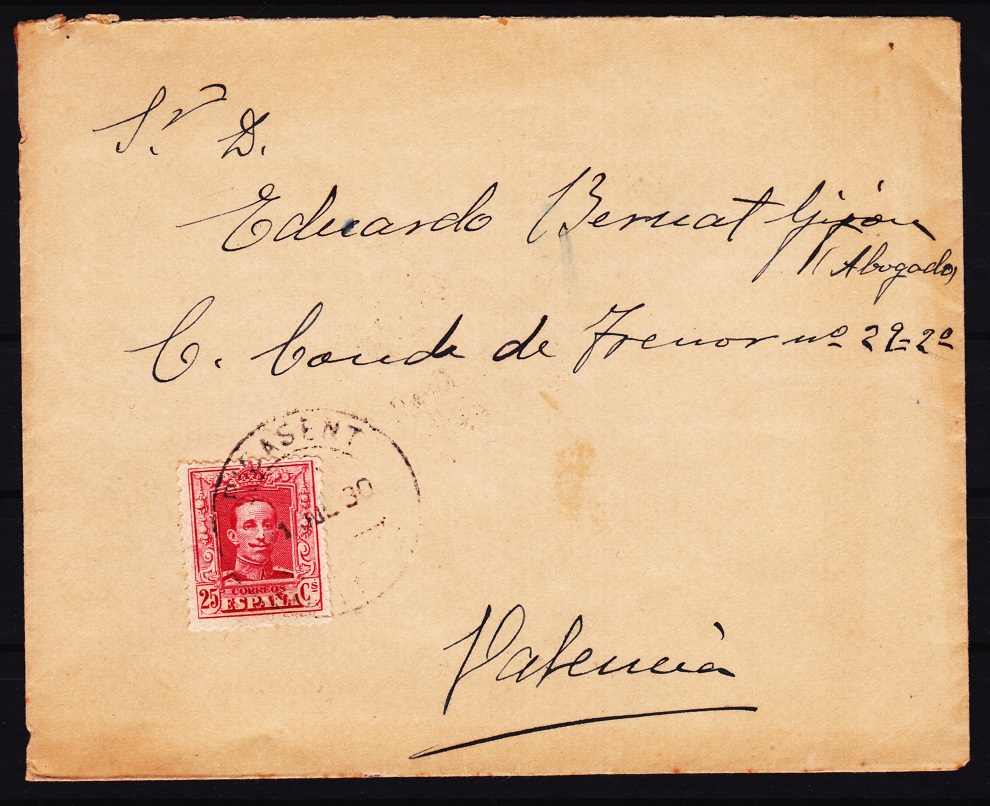 Sr. D.
Eduardo Bernat Gijón
(Abogado)
C. Conde de Trenor nº 29-2º
1 JUL 30
CORREOS
25 ESPAÑA Cs
Valencia